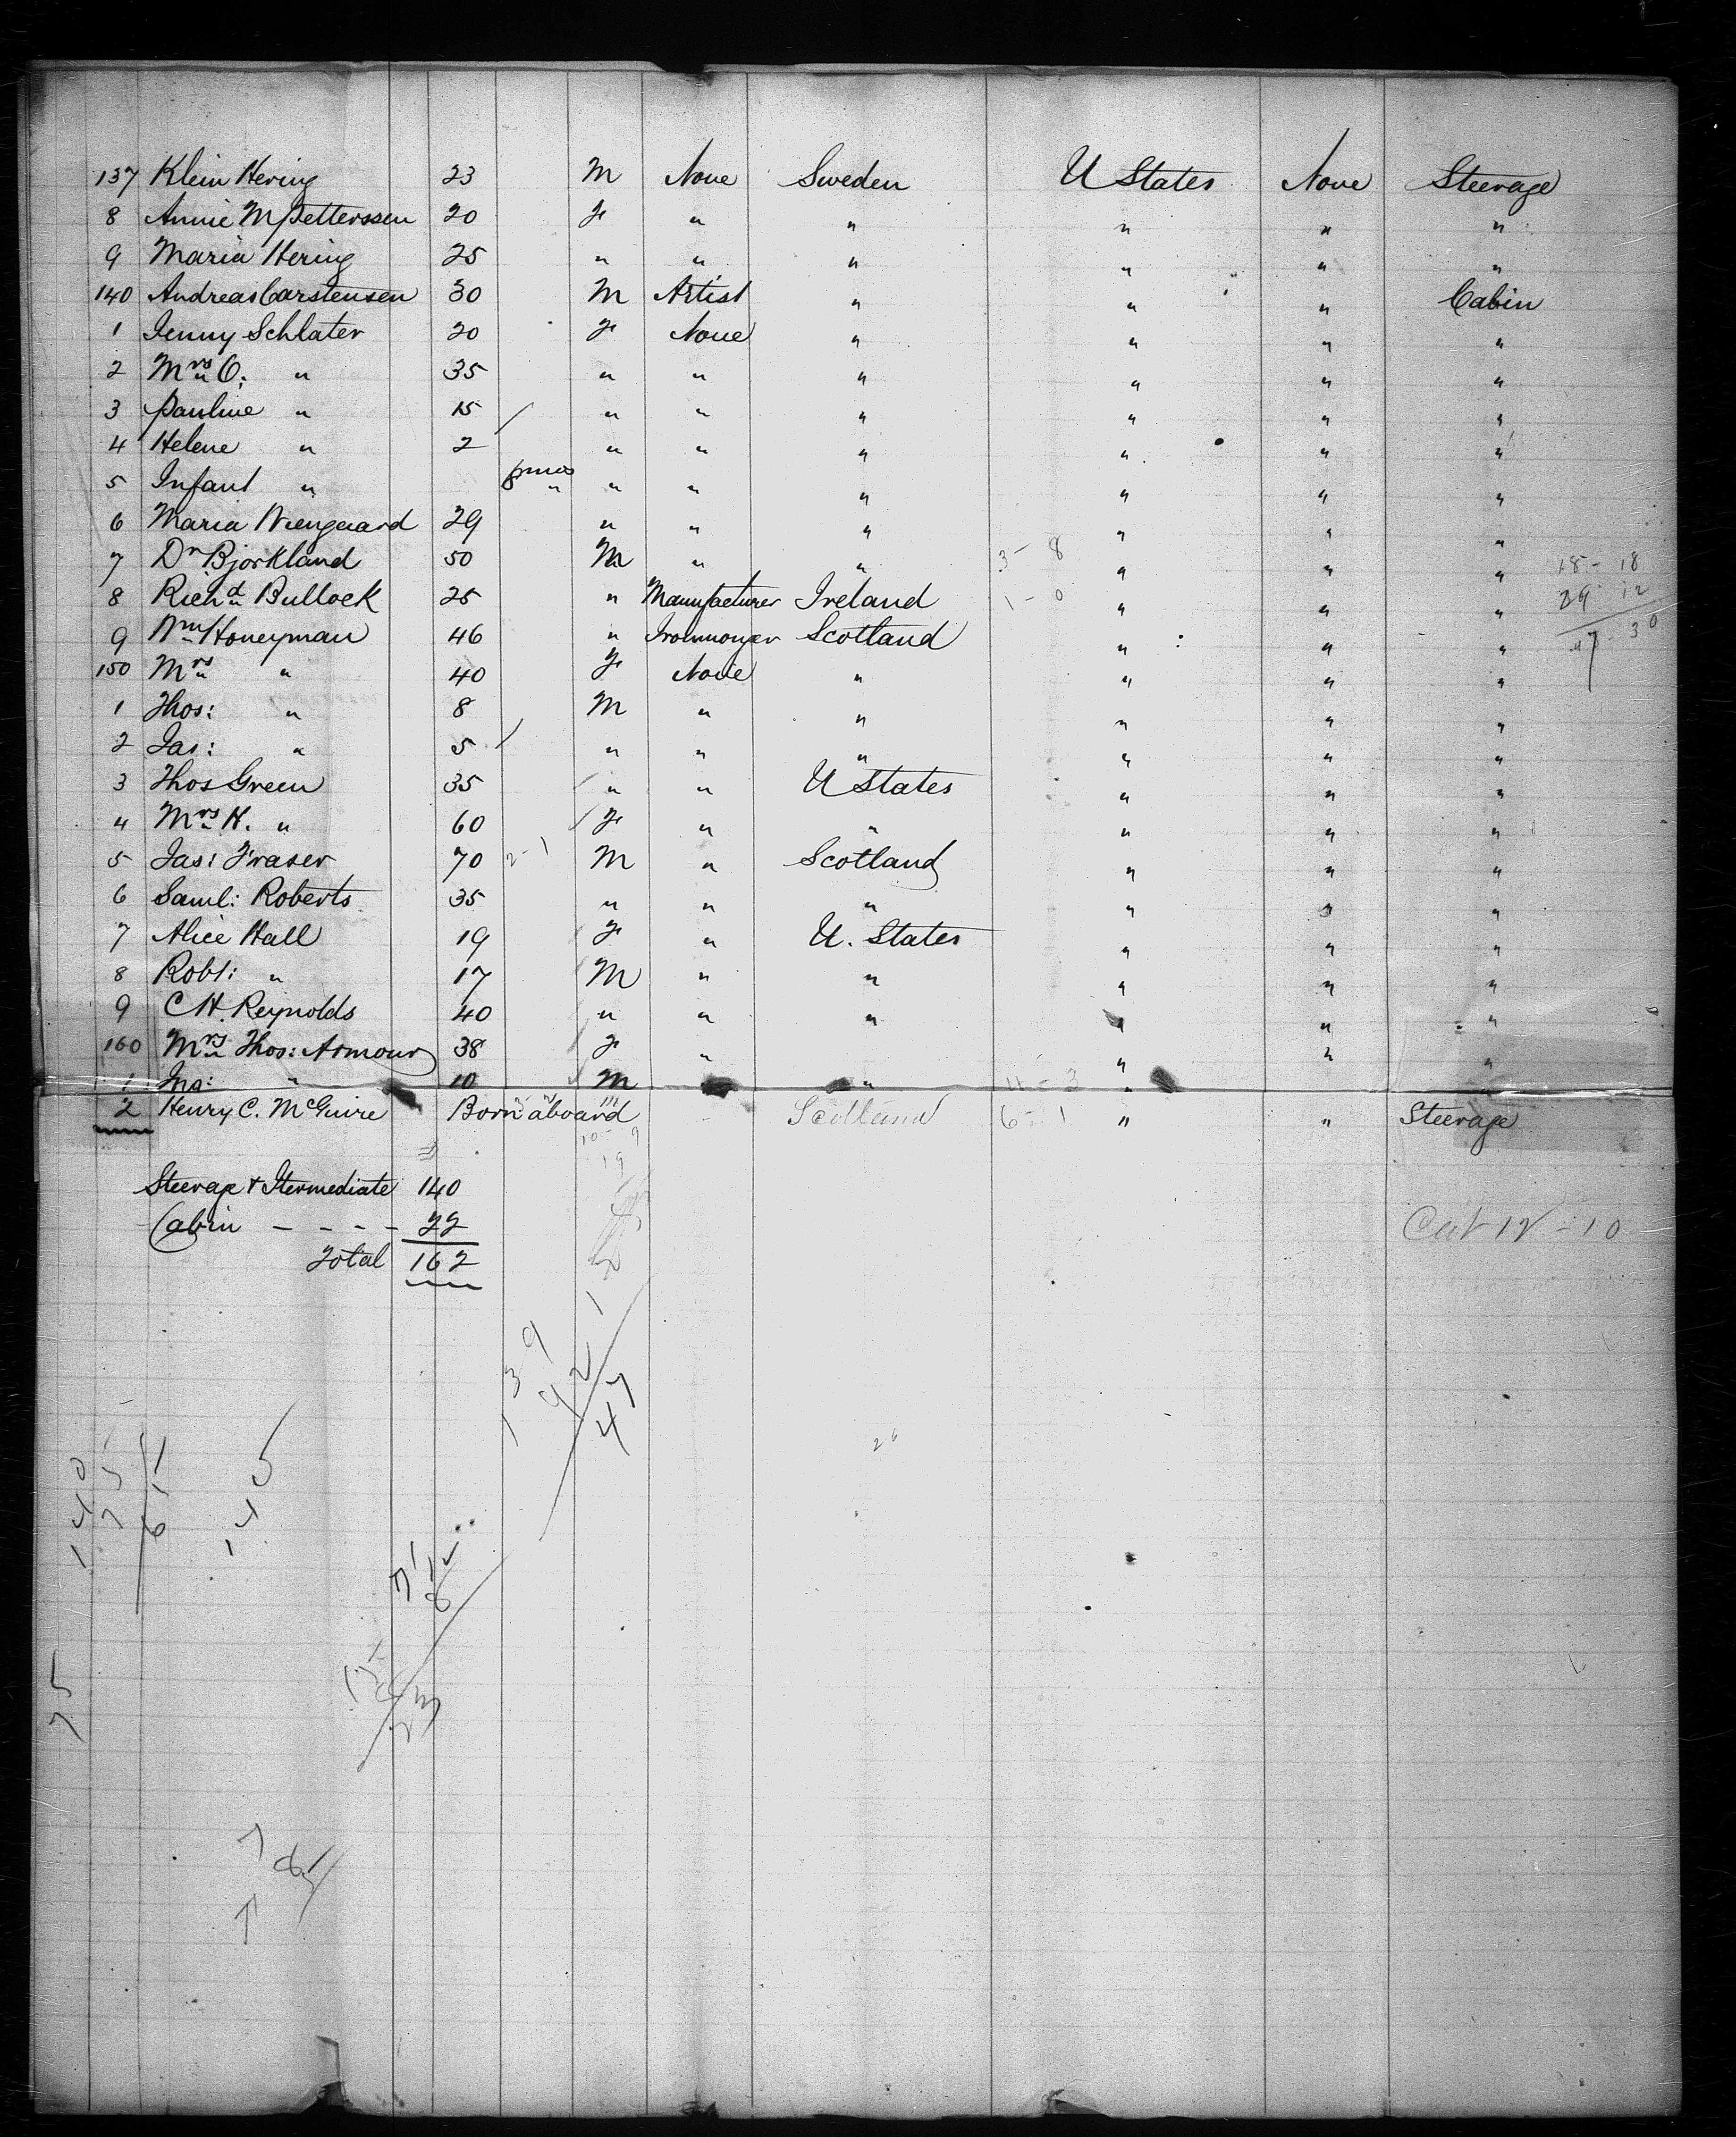 137 Klein Hering 23 M None Sweden U States None Steerage
8 Annie M Petterssen 20 F " " " " "
9 Maria Hering 25 " " " " " "
140 Andreas Carstensen 30 M Artist " " " Cabin
1 Jenny Schlater 20 F None " " " "
2 Mrs O. " 35 " " " " " "
3 Pauline " 15 " " " " " "
4 Helene " 2 " " " " " "
5 Infant " mos " " " " " " "
6 Maria 29 " " " " " "
7 Dr Bjorkland 50 M " " 3-8 " " " 18-18
8 Richd Bullock 25 " Manufacturer Ireland 1-0 " " " 29-12
9 Wm Honeyman 46 " Ironmonger Scotland " " " 30
150 Mrs " 40 F None " " " "
1 Thos: " 8 M " " " " "
2 Jas: " 5 " " " " " "
3 Thos Green 35 " " U States " " "
4 Mrs H. " 60 F " " " " "
5 Jas: Fraser 70 2-1 M " Scotland " " "
6 Saml: Roberts 35 " " " " " "
7 Alice Hall 19 F " U. States " " "
8 Robt: " 17 M " " " " "
9 C H. Reynolds 40 " " " " " "
160 Mrs Thos: Armour 38 F " " " "
1 Jno: " 10 M " " 11-3 " "
2 Henry C. McGuire Born aboard Scotland 6-1 " " Steerage
10-9
19
Steerage & Itermediate 140
Cabin - - - - 22
Total 162
139
92
47
26
140
75
61
145
75